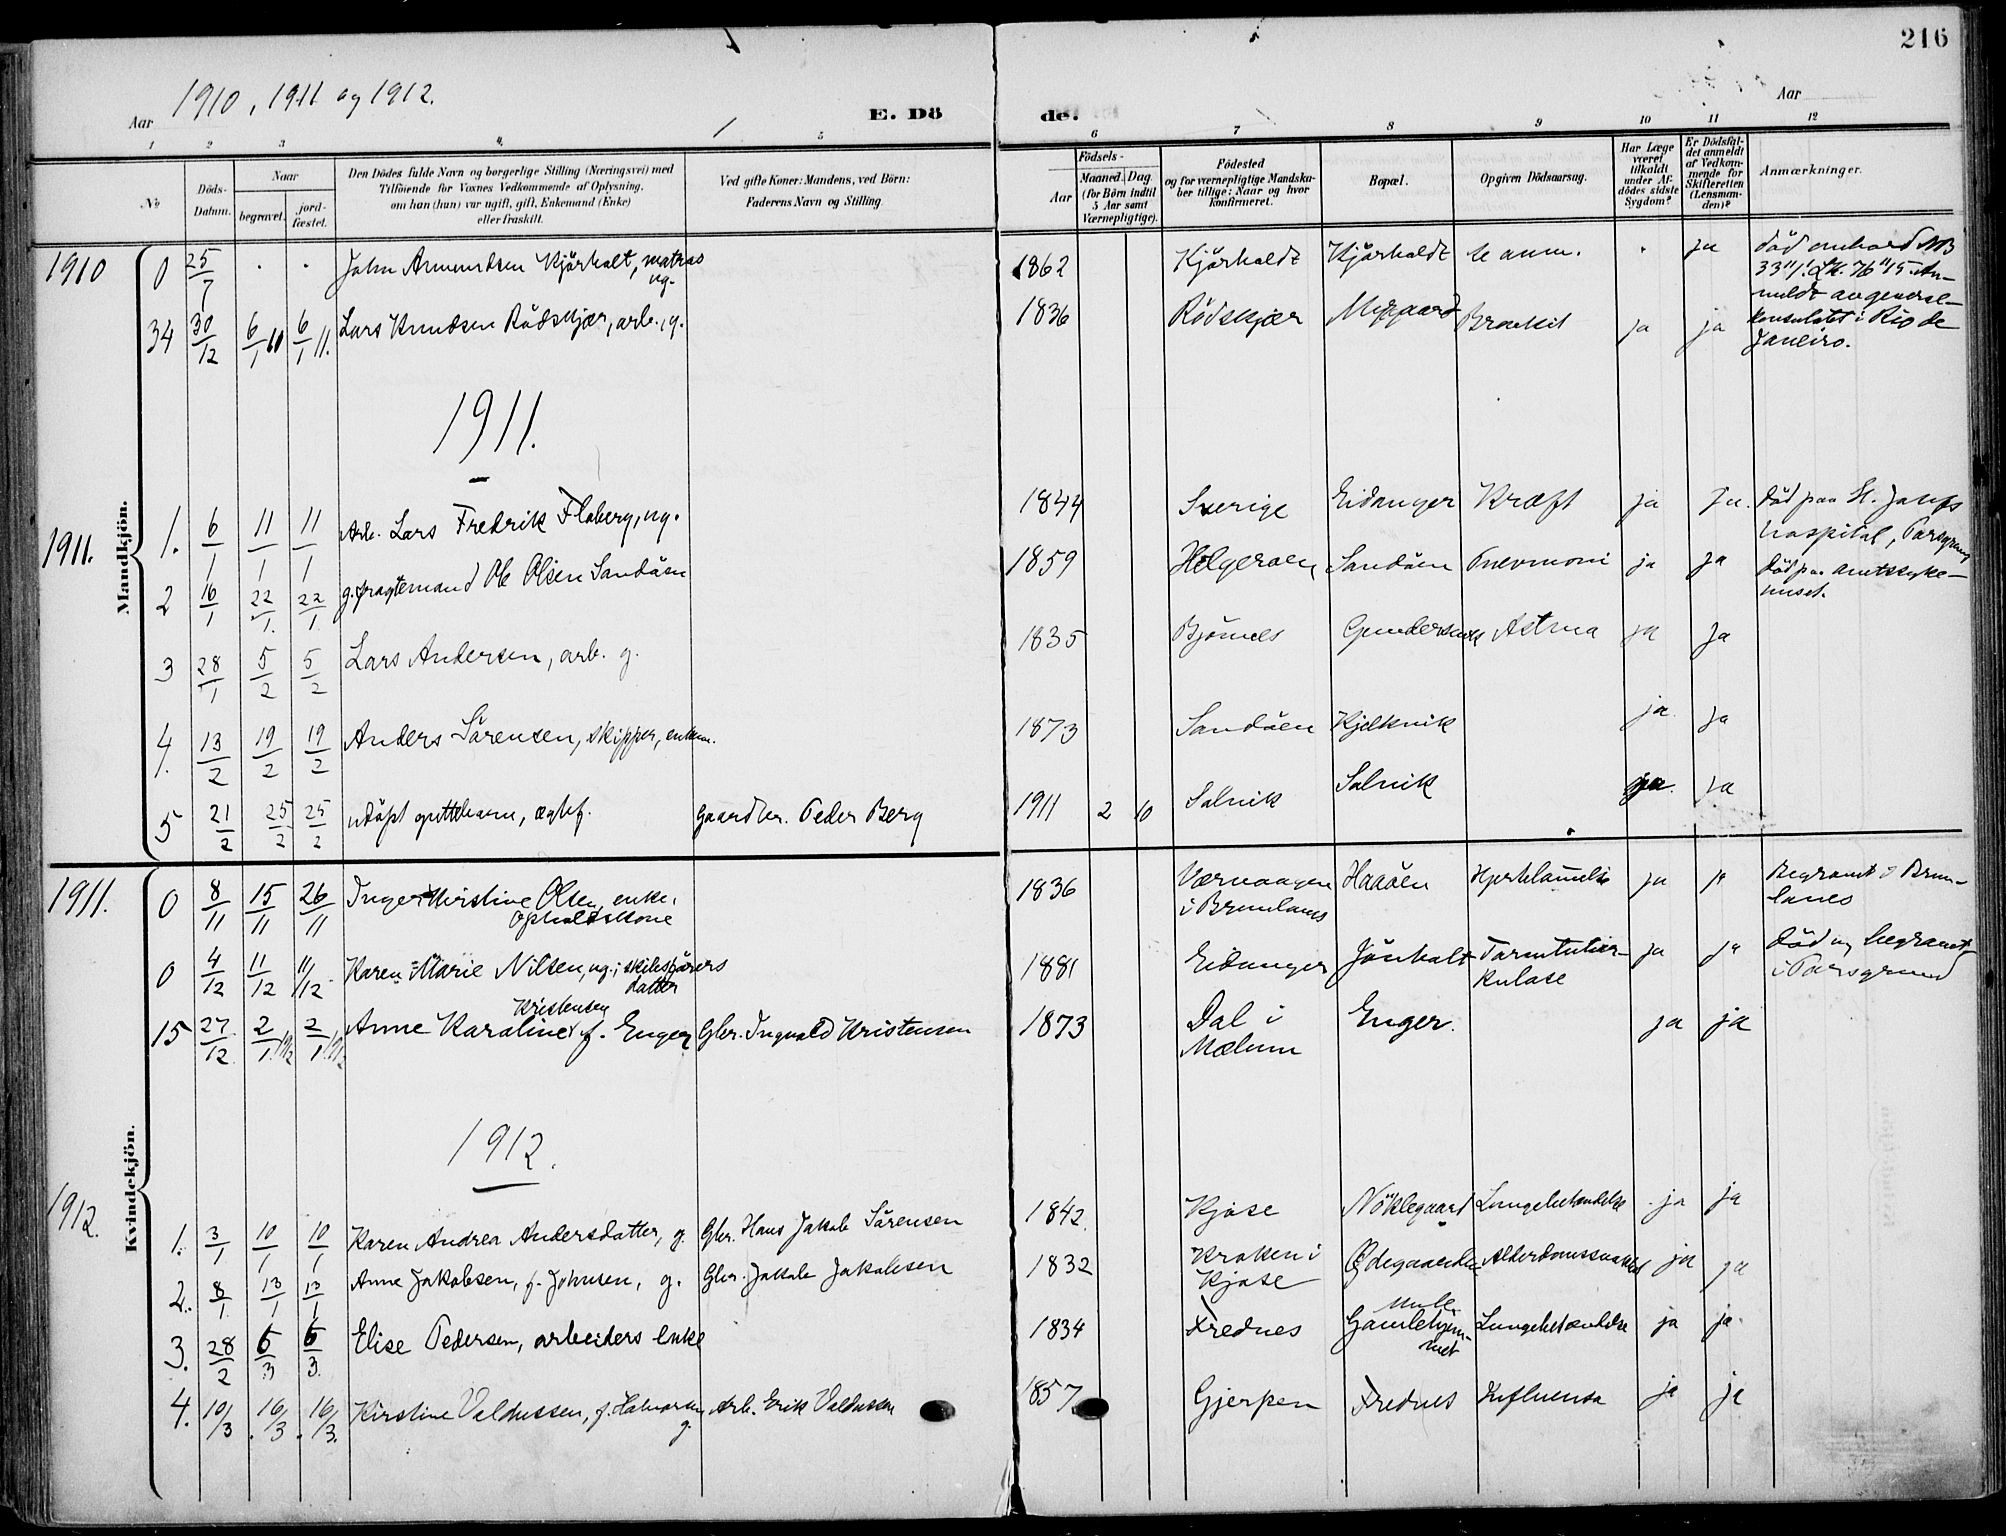 216
Aar 1910, 1911 og 1912.
E. Dö
de.
Aar
1 2 3 4. 5 6 7 8 9 10 11 12
No
Döds-
Datum.
Naar
begravet.
jord-
fæstet.
Den Dödes fulde Navn og borgerlige Stilling (Næringsvei) med
Tilföiende for Voxnes Vedkommende af Oplysning,
om han (hun) var ugift, gift, Enkemand (Enke)
eller fraskilt.
Ved gifte Koner: Mandens, ved Börn:
Faderens Navn og Stilling.
Födsels-
Aar
Maaned. Dag
(for Börn indtil
5 Aar samt
Værnepligtige).
Födested
og for værnepligtige Mandska-
ber tillige: Naar og hvor
konfirmeret.
Bopæl.
Opgiven Dödsaarsag.
Har Læge
været
tilkaldt
under Af-
dödes sidste
Sygdom?
Er Dödsfal-
det anmeldt
af Vedkom-
mende for
Skifteretten
(Lensman-
den)?
Anmærkninger.
Mandkjön.
1910 0 25/7 . . John Amundsen Kjørholt, matros ug. 1862 Kjørholdt Kjørholdt . ja død ombord NB
33"/1. LK. 76"15. An-
meldt av general-
konsulatet i Rio de
Janeiro.
34 30/12 6/1 11 6/1 11. Lars Knudsen Rødskjær, arb., g. 1836 Rødskjær Bronkit ja ja
1911.
1911. 1. 6/1 11/1 11/1 Arb. Lars Fredrik Floberg, ug. 1844 Sverige Eidanger Kræft ja Ja. Død paa St. Josefs
hospital, Porsgrund
2 16/1 22/1. 22/1 g. fragtemand Ole Olsen Sandøen 1859 Helgeroen Sandøen Pnevmoni ja ja Død paa amtssyke-
huset.
3 28/1 5/2 5/2 Lars Andersen, arb. g. 1835 Bjønnes Astma ja Ja
4. 13/2 19/2 19/2 Anders Sørensen, skipper, enkem. 1873 Sandøen Kjelkvik ja ja
5 21/2 25/2 25/2 udøpt guttebarn, ægtef. Gaardbr. Peder Berg 1911 2 10 Salvik Salvik ja ja
Kvindekjön.
1911. 0 8/11 15/11 26/11 Inger Kirstine Olsen, enke,
opholdskone 1836
i Brunlanes Haaøen Hjertelammelse ja ja Begravet i Brun-
lanes
0 4/12 11/12 11/12 Karen Marie Nilsen, ug., skibsførers
datter 1881 Eidanger Jønholt Tarmtuber-
kulose ja ja Død og begravet
i Porsgrund
Kristensen
15 27/12 2/1 1912 2/1 1912 Anne Karoline f. Enger Gbr. Ingvald Kristensen 1873 Dal i
Mælum Enger. ja ja
1912.
1912. 1. 3/1 10/1 10/1 Karen Andrea Andersdatter, g. Gbr. Hans Jakob Sørensen 1842. Kjose Nøklegaard Lungebetændelse ja ja
2. 8/1 13/1 13/1 Anne Jakobsen, f. Johnsen, g. Gbr. Jakob Jakobsen 1832 Kroken i
Kjose Ødegaarden Alderdomssvakhet ja ja
3. 28/2 6/3 6/3 Elise Pedersen, arbeiders enke 1834 Frednes Gamlehjem-
met Lungebetændelse ja ja
4. 10/3 16/3 16/3. Kirstine Valdussen, f. Halvorsen g. Arb. Erik Valdussen 1857 Gjerpen Frednes Influensa ja ja